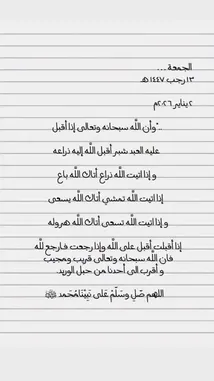 الجمعة ...
١٣ رجب ١٤٤٧ هـ
٢ يناير ٢٠٢٦م
.."وأن الله سبحانه وتعالى إذا أقبل
عليه العبد شبر أقبل الله إليه ذراعه
و إذا اتيت الله ذراع أتاك الله باع
و إذا اتيت الله تمشي أتاك الله يسعى
و إذا اتيت الله تسعى أتاك الله هروله
إذا أقبلت أقبل على الله وإذا رجعت فارجع لله
فان الله سبحانه وتعالى قريب ومجيب
و أقرب الى أحدنا من حبل الوريد.
اللهم صل وسلم على نبينا محمد ﷺ